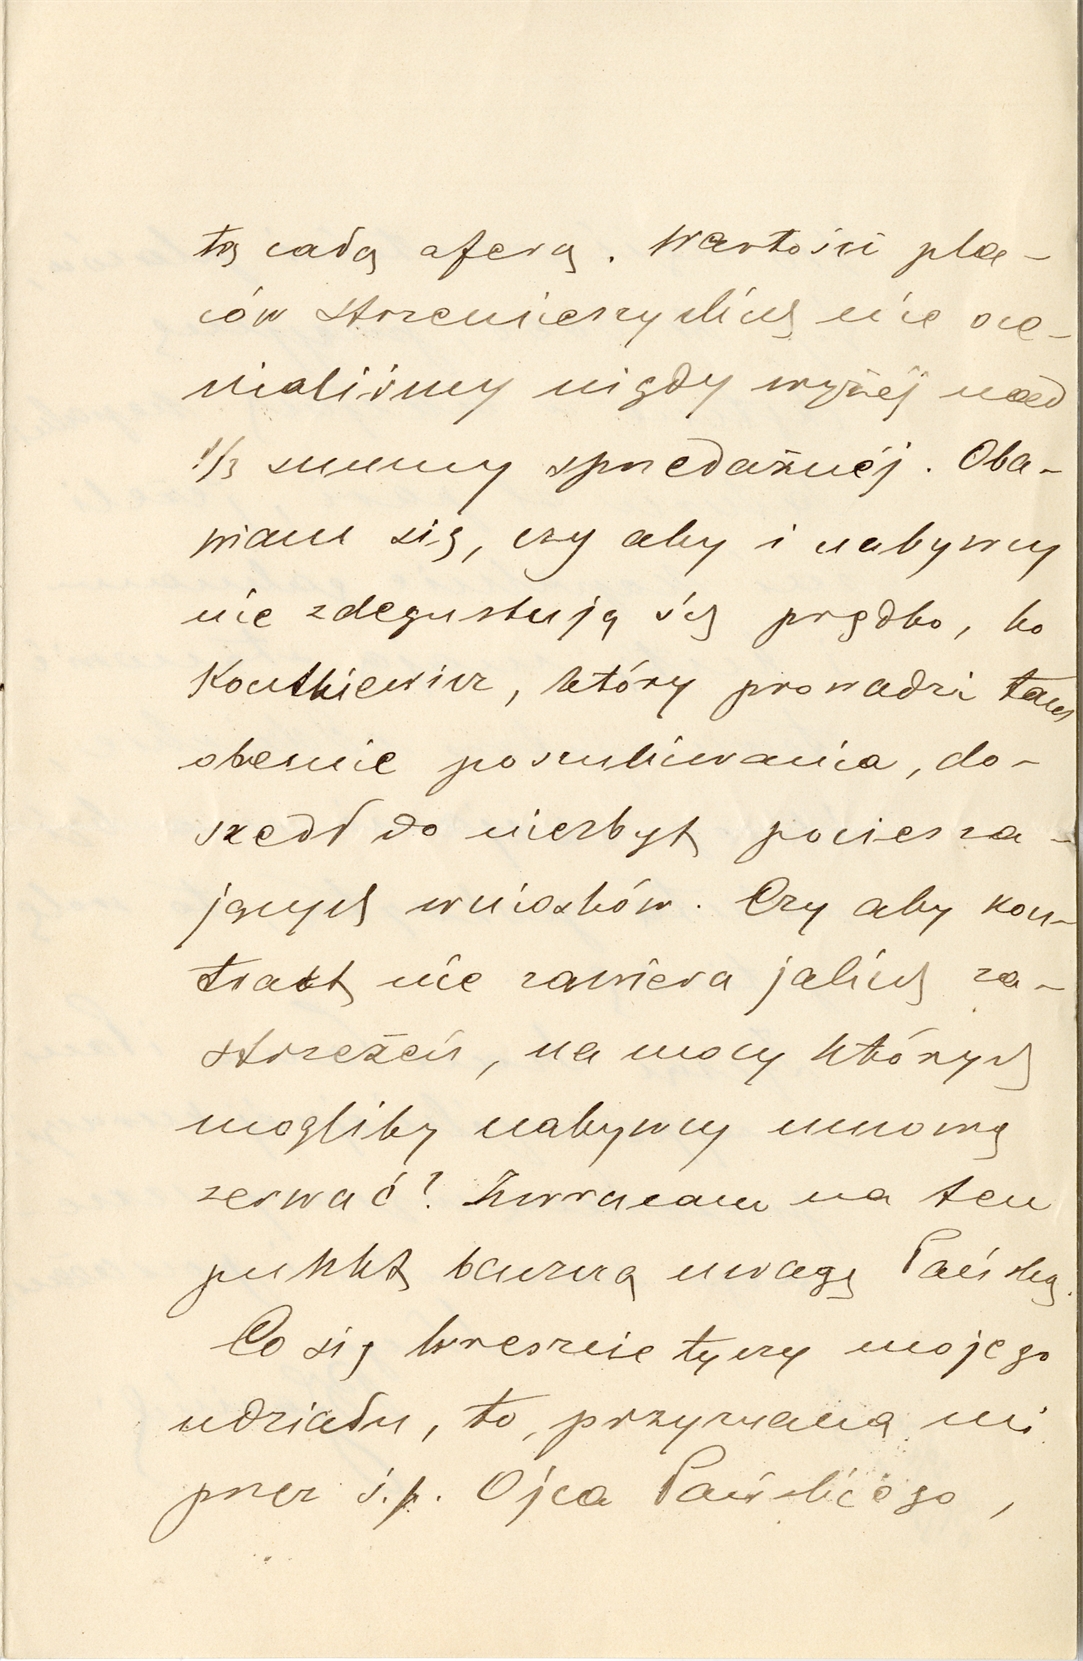 tą całą aferą. Wartości pla-
ców strzemieszyckich nie oce-
nialiśmy nigdy wyżéj nad
1/3 summy sprzedażnéj. Oba-
wiam się, czy aby i nabywcy
nie zdegustują się prędko, bo
Kontkiewicz, który prowadzi tam
obecnie poszukiwania, do-
szedł do niezbyt pociesza-
jących wniosków. Czy aby kon-
trakt nie zawiera jakich za-
strzeżeń, na mocy których
mogliby nabywcy umowę
zerwać? Zwracam na ten
punkt baczną uwagę Pańską.
Co się wreszcie tyczy mojego
udziału, to, przyznana mi
przez ś.p. Ojca Pańskiego,